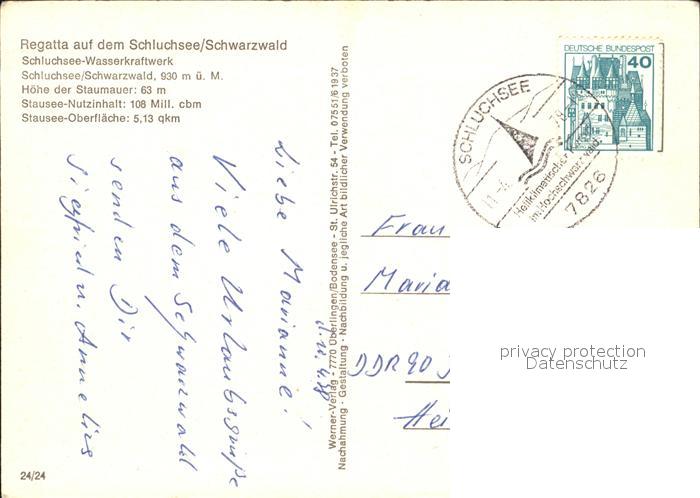 Regatta auf dem Schluchsee/Schwarzwald
Schluchsee-Wasserkraftwerk
Schluchsee/Schwarzwald, 930 m ü. M.
Höhe der Staumauer: 63 m
Stausee-Nutzinhalt: 108 Mill. cbm
Stausee-Oberfläche: 5,13 qkm
Liebe Marianne!
Viele Urlaubsgrüße
aus dem Schwarzwald
senden Dir
Siegfried u. Annelies
24/24
Werner-Verlag - 7770 Überlingen/Bodensee - St. Ulrichstr. 54 - Tel. 07551/61937
Nachahmung - Gestaltung - Nachbildung u. jegliche Art bildlicher Verwendung verboten
DEUTSCHE BUNDESPOST
40
SCHLUCHSEE
Heilklimatischer
im Hochschwarzwald
7826
Frau
Maria
DDR 90
Hei
privacy protection
Datenschutz